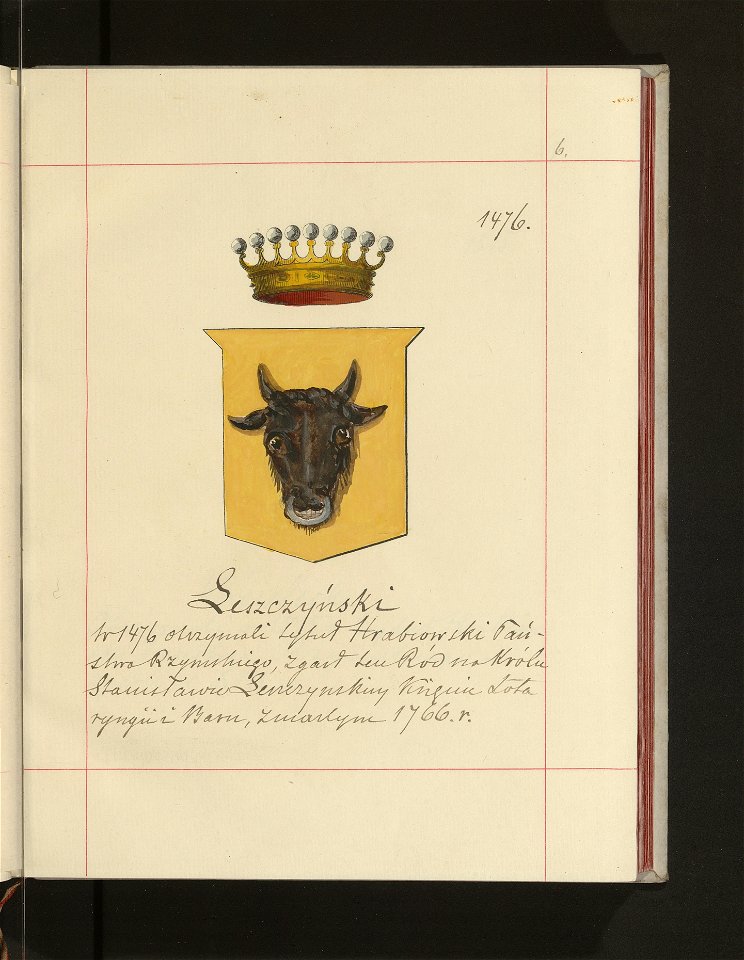 6.
1476.
Leszczyński
W 1476 otrzymali tytuł Hrabiowski Pań-
stwa Rzymskiego, zgasł ten Ród na Królu
Stanisławie Leszczynskim Księciu Lota
ryngii i Baru, zmarłym 1766. r.